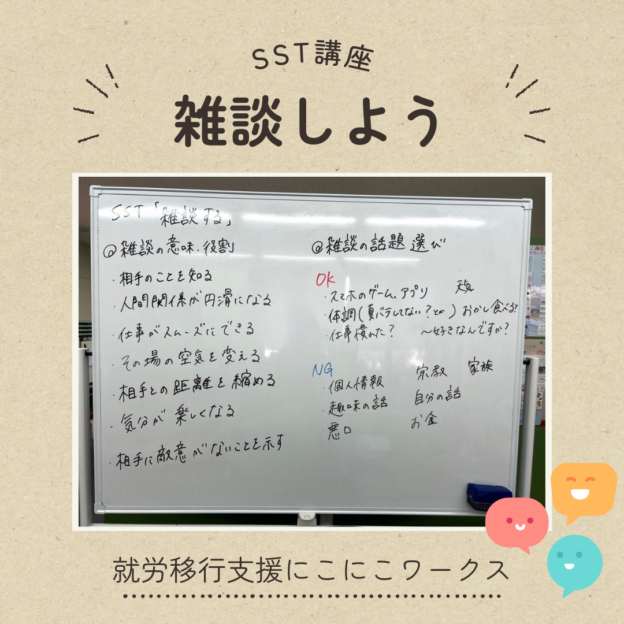 SST講座
雑談しよう
SST「雑談する」
◎雑談の意味・役割
・相手のことを知る
・人間関係が円滑になる
・仕事がスムーズにできる
・その場の空気を変える
・相手との距離を縮める
・気分が楽しくなる
・相手に敵意がないことを示す
◎雑談の話題選び
OK
・スマホのゲーム、アプリ 天気
・体調(夏バテしてない?とか) おかし食べる?
・仕事慣れた? 〜好きなんですか?
NG
・個人情報 宗教 家族
・趣味の話 自分の話
・悪口 お金
就労移行支援にこにこワークス